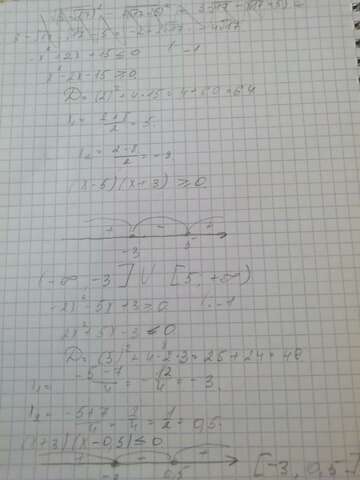 -x²+2x+15≤0 |:-1
x²-2x-15≥0
D=(2)²+4·15=4+60=64
x₁=(2+8)/2=5
x₂=(2-8)/2=-3
(x-5)(x+3)≥0
+ - +
-3 5
(-∞,-3]∪[5;+∞)
-2x²-5x+3≥0 |:-1
2x²+5x-3≤0
D=(5)²+4·2·3=25+24=49
x₁=(-5-7)/4=-12/4=-3
x₂=(-5+7)/4=2/4=1/2=0,5
(x+3)(x-0,5)≤0
+ - +
-3 0,5 [-3,0,5]